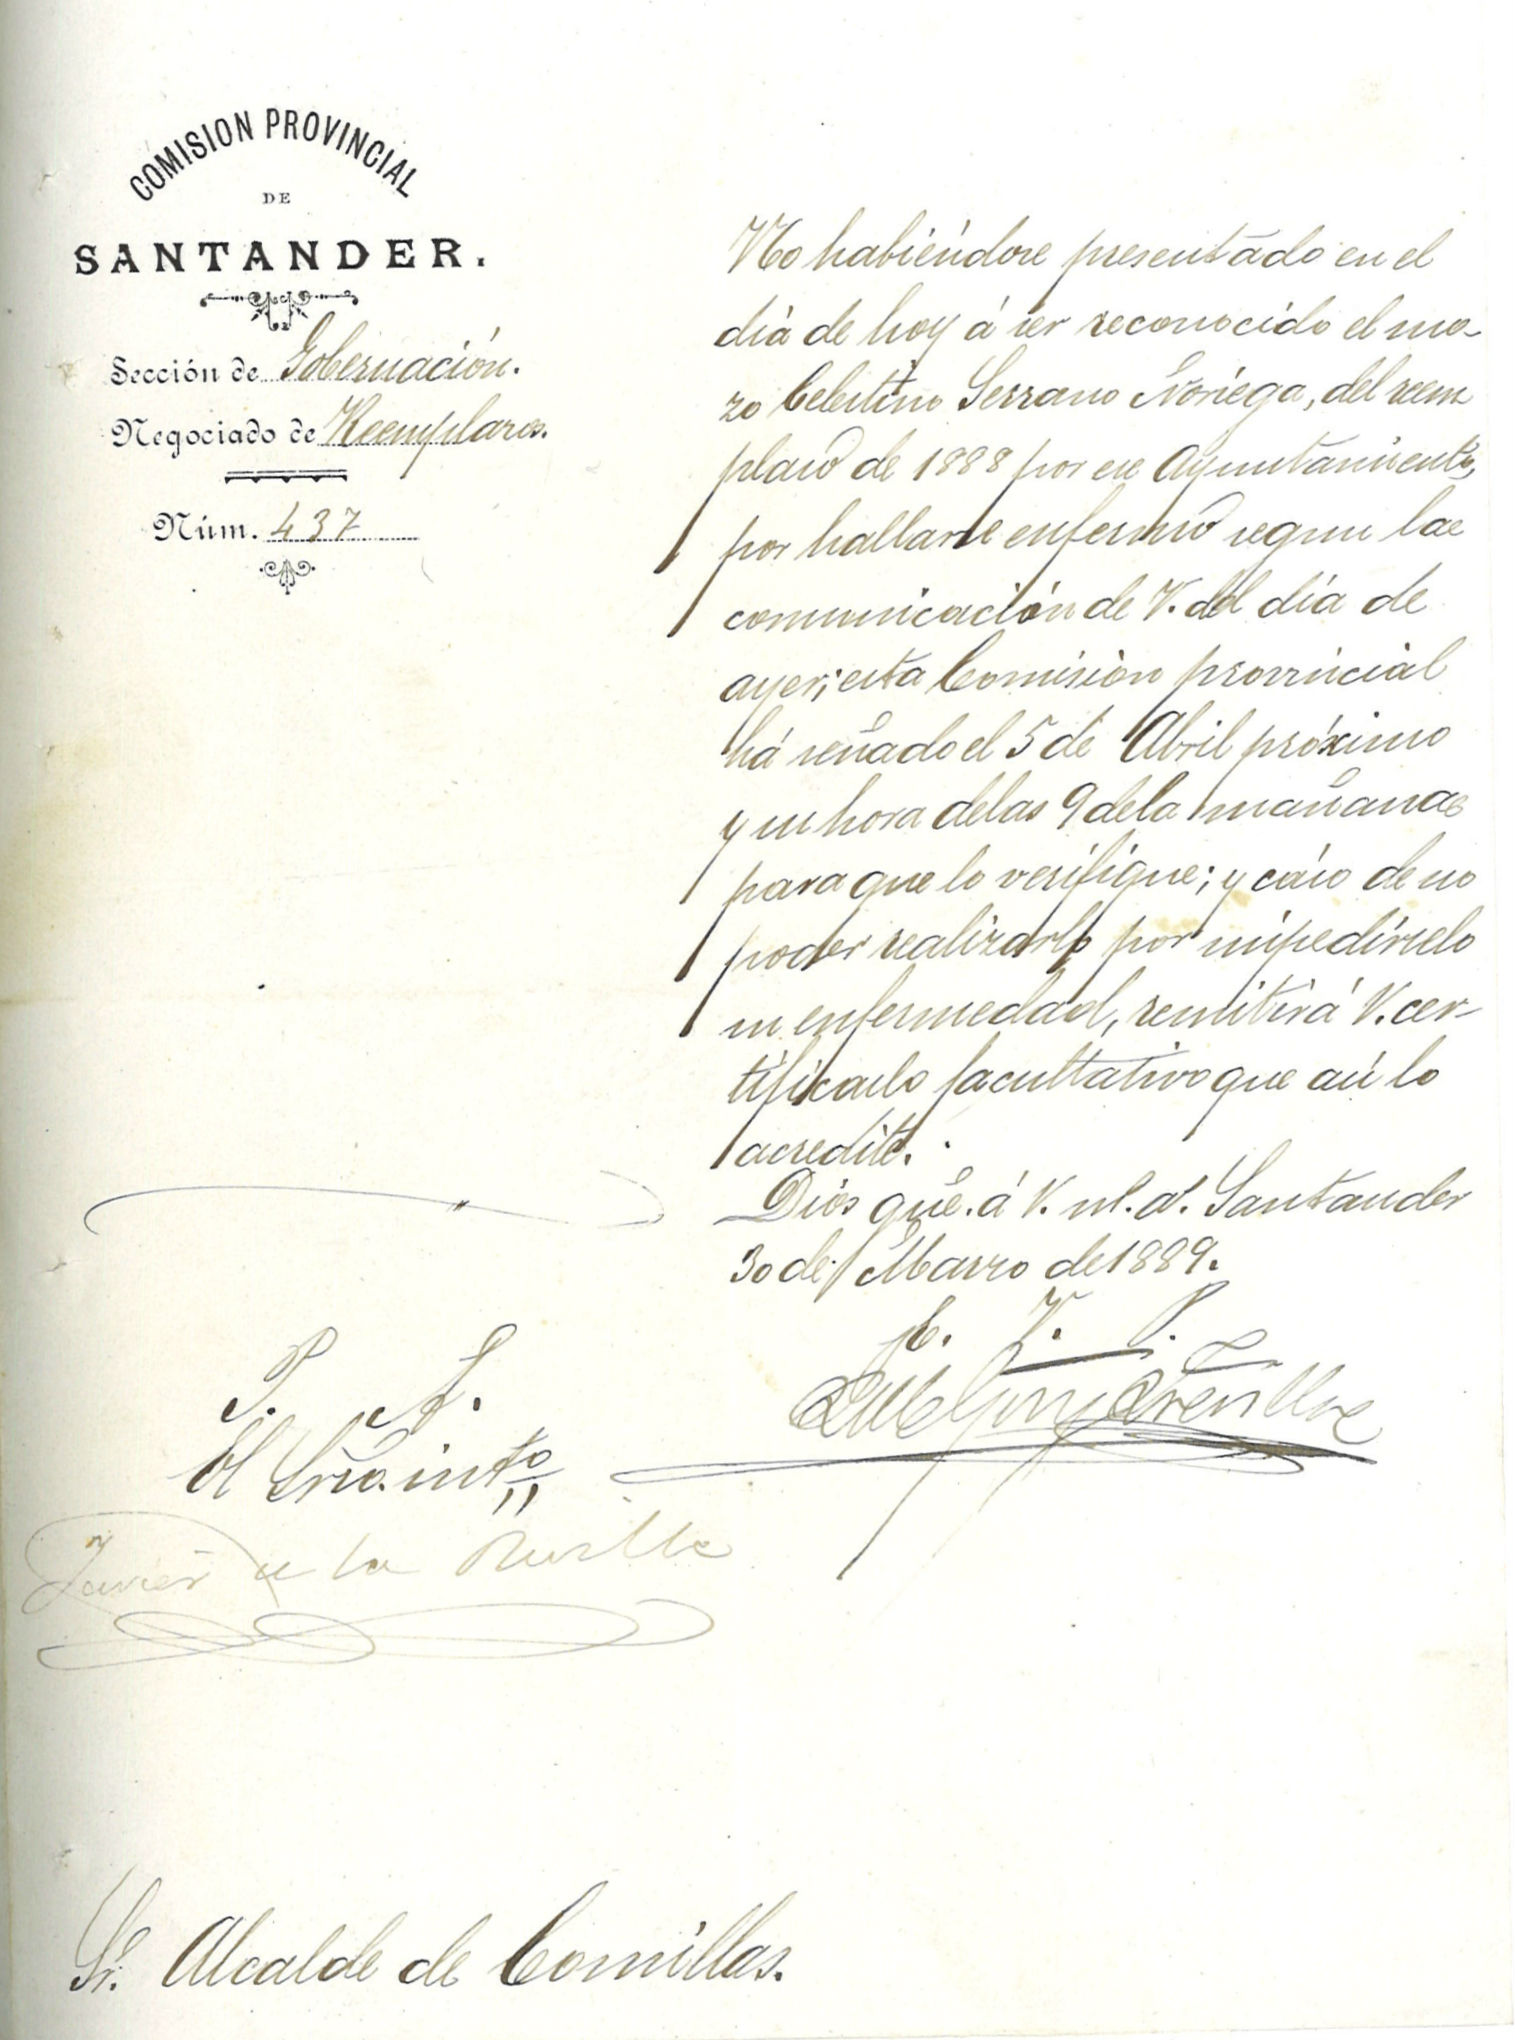 COMISION PROVINCIAL
DE
SANTANDER.
Sección de Gobernación.
Negociado de Reemplazos.
Núm. 437
No habiéndose presentado en el
día de hoy á ser reconocido el mo-
zo Celestino Serrano Noriega, del reem
plazo de 1888 por ese Ayuntamiento,
por hallarse enfermo segun la
comunicación de V. del día de
ayer; esta Comisión provincial
há señado el 5 de Abril próximo
y su hora delas 9 dela mañana
para que lo verifique; y cáso de no
poder realizarlo por impedírselo
su enfermedad, remitirá V. cer-
tificado facultativo que así lo
acredite.
Dios gue. á V. m. a. Santander
30 de Marzo de 1889.
E. V. P.
P. A.
El Srio. intº
Javier de la
Sr. Alcalde de Comillas.